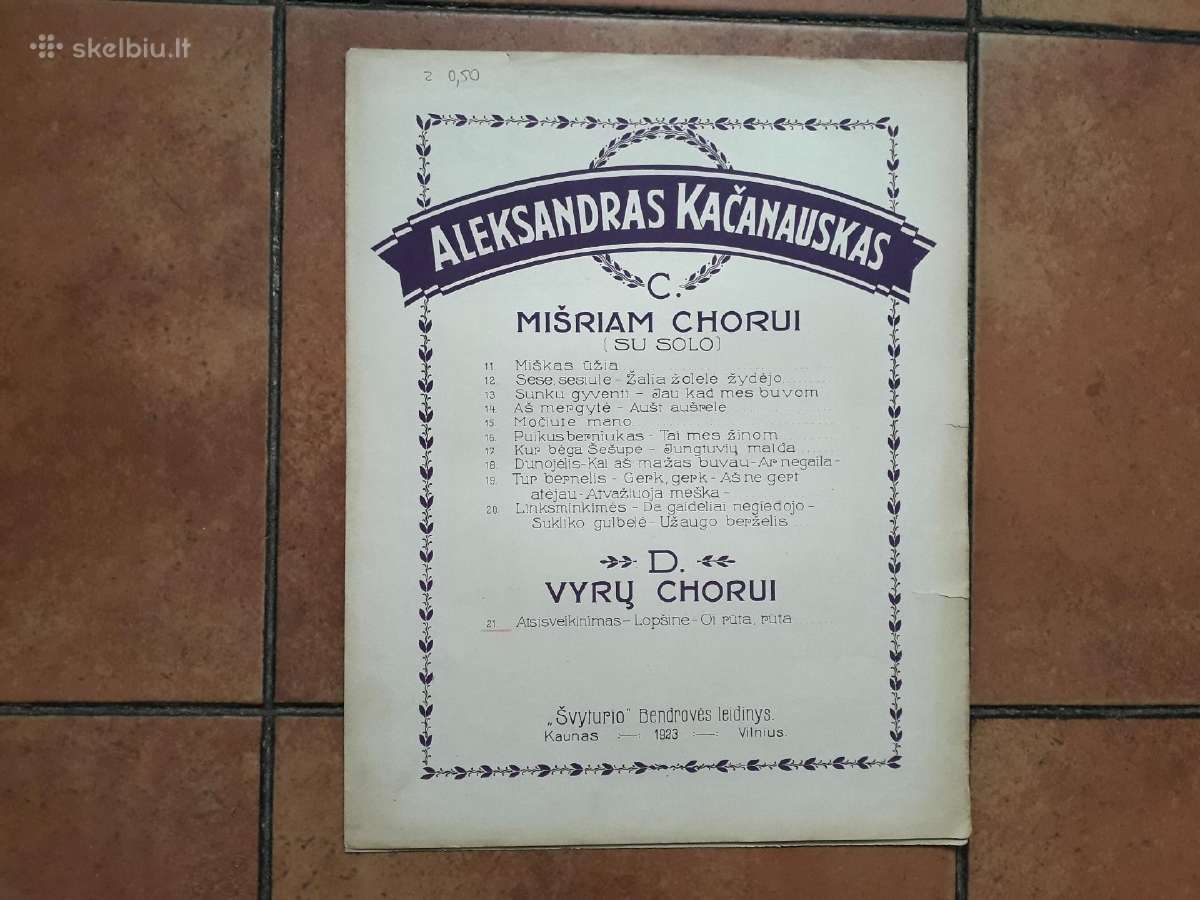 skelbiu.lt
2 0,50
ALEKSANDRAS KAČANAUSKAS
C.
MIŠRIAM CHORUI
(SU SOLO)
11. Miškas ūžia
12. Sese, sesiule - Žalia žolelė žydėjo
13 Sunku gyventi - Jau kad mes buvom
14. Aš mergytė - Aušt aušrelė
15. Močiute mano
16. Puikus berniukas - Tai mes žinom
17. Kur bėga Šešupe - Jungtuvių malda
18. Dunojėlis - Kai aš mažas buvau - Ar negaila -
19. Tur bernelis - Gerk, gerk - Aš ne gert
atėjau - Atvažiuoja meška -
20. Linksminkimės - Da gaideliai negiedojo -
Sukliko gulbelė - Užaugo berželis
D.
VYRŲ CHORUI
21 Atsisveikinimas - Lopšinė - Oi rūta, rūta
„Švyturio" Bendrovės leidinys.
Kaunas 1923 Vilnius.